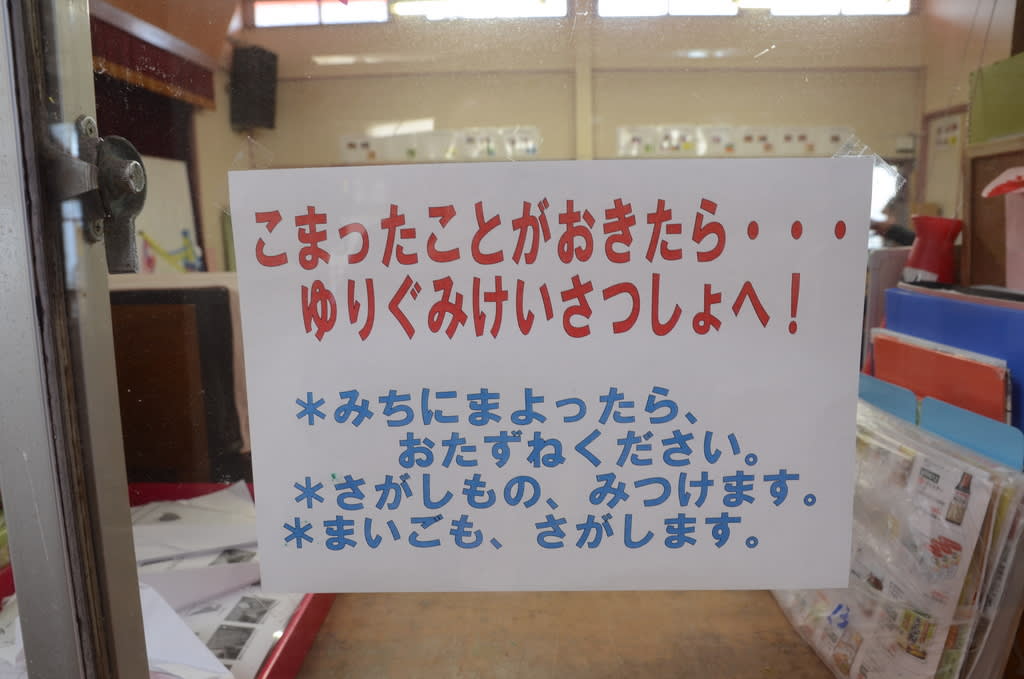 こまったことがおきたら・・・
ゆりぐみけいさつしょへ！
＊みちにまよったら、
おたずねください。
＊さがしもの、みつけます。
＊まいごも、さがします。